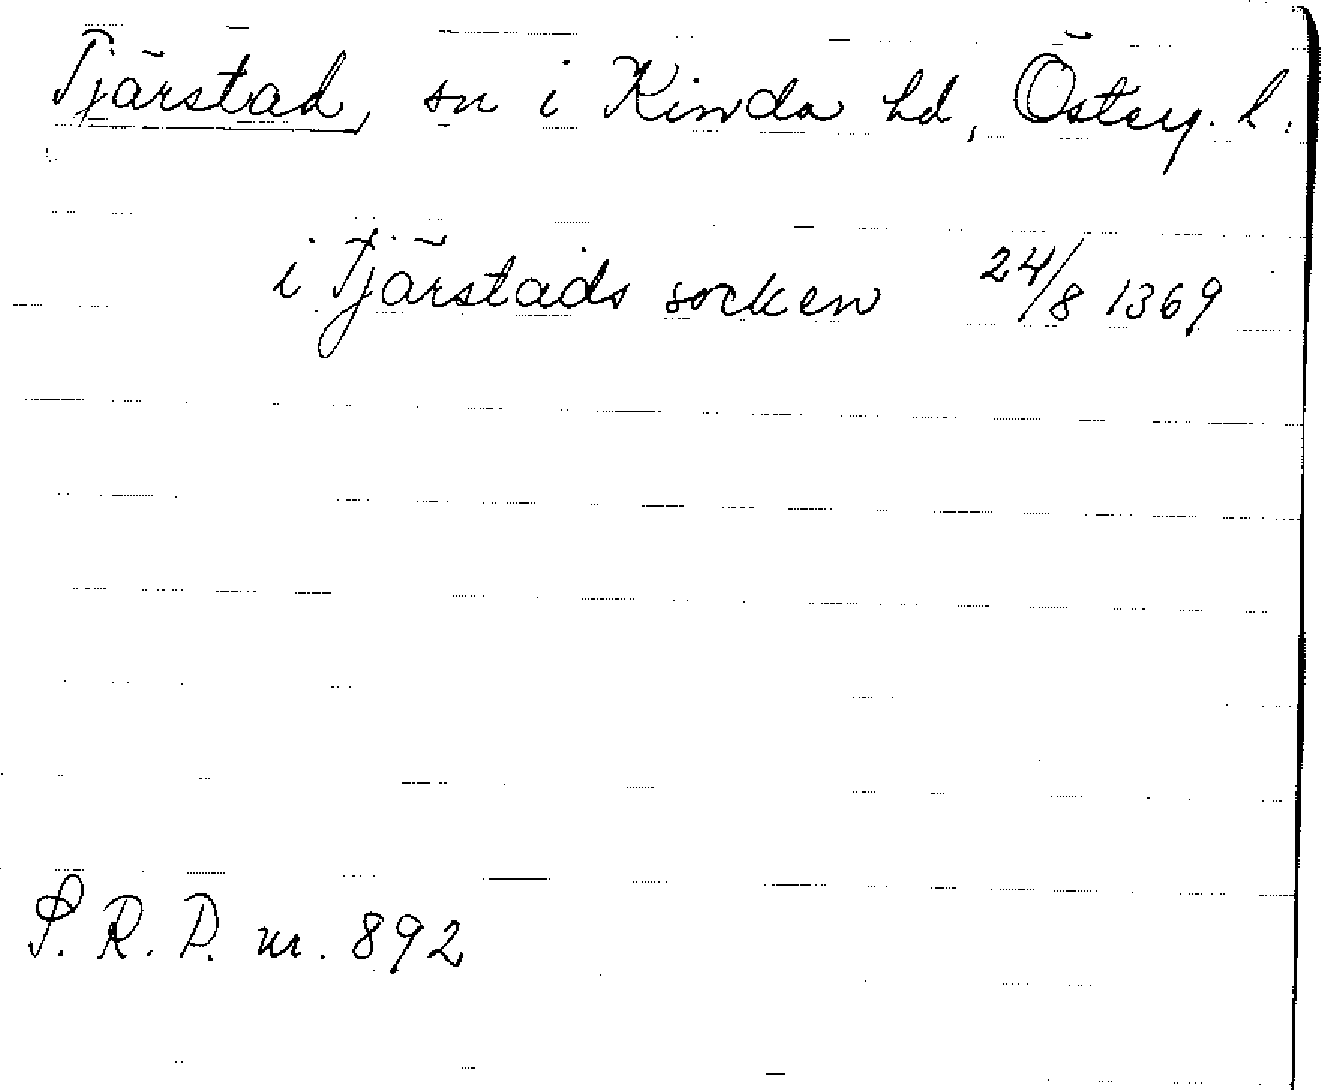 Tjärstad, sn i Kinda hd, Österg. l.
i Tjärstads socken 24/8 1369
S. R. P. nr. 892